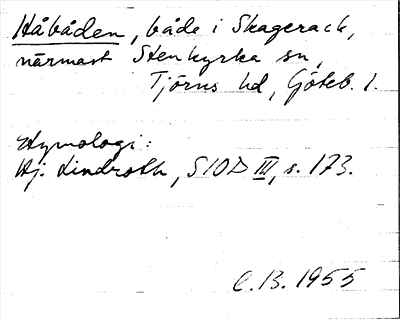 Håbåden, både i Skagerack,
närmast Stenkyrka sn,
Tjörns hd, Göteb. l.
Etymologi:
Hj. Lindroth, SIOD III, s. 173.
C.B. 1955